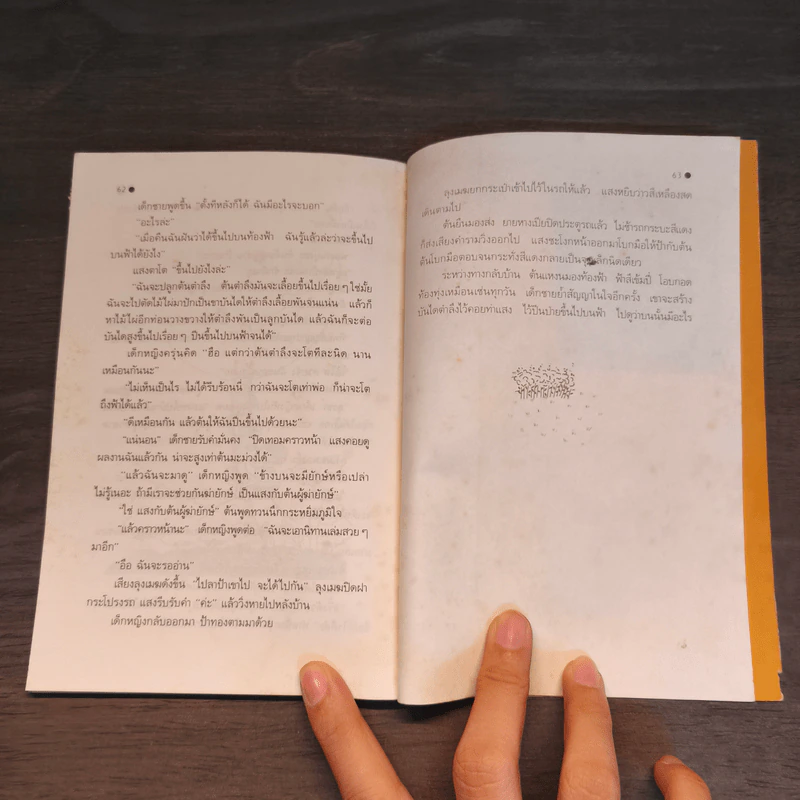 62 ●
เด็กชายพูดขึ้น "ตั้งทีหลังก็ได้ ฉันมีอะไรจะบอก"
"อะไรล่ะ"
"เมื่อคืนฉันฝันว่าได้ขึ้นไปบนท้องฟ้า ฉันรู้แล้วล่ะว่าจะขึ้นไป
บนฟ้าได้ยังไง"
แสงตาโต "ขึ้นไปยังไงล่ะ"
"ฉันจะปลูกต้นตำลึง ต้นตำลึงมันจะเลื้อยขึ้นไปเรื่อยๆ ใช่มั้ย
ฉันจะไปตัดไม้ไผ่มาปักเป็นขาบันไดให้ตำลึงเลื้อยพันจนแน่น แล้วก็
หาไม้ไผ่อีกท่อนวางขวางให้ตำลึงพันเป็นลูกบันได แล้วฉันก็จะต่อ
บันไดสูงขึ้นไปเรื่อยๆ ปีนขึ้นไปบนฟ้าจนได้"
เด็กหญิงครุ่นคิด "ฮือ แต่กว่าต้นตำลึงจะโตทีละนิด นาน
เหมือนกันนะ"
"ไม่เห็นเป็นไร ไม่ได้รีบร้อนนี่ กว่าฉันจะโตเท่าพ่อ ก็น่าจะโต
ถึงฟ้าได้แล้ว"
"ดีเหมือนกัน แล้วต้นให้ฉันปีนขึ้นไปด้วยนะ"
"แน่นอน" เด็กชายรับคำมั่นคง "ปิดเทอมคราวหน้า แสงคอยดู
ผลงานฉันแล้วกัน น่าจะสูงเท่าต้นมะม่วงได้"
"แล้วฉันจะมาดู" เด็กหญิงพูด "ข้างบนจะมียักษ์หรือเปล่า
ไม่รู้เนอะ ถ้ามีเราจะช่วยกันฆ่ายักษ์ เป็นแสงกับต้นผู้ฆ่ายักษ์"
"ใช่ แสงกับต้นผู้ฆ่ายักษ์" ต้นพูดทวนนึกกระหยิ่มภูมิใจ
"แล้วคราวหน้านะ" เด็กหญิงพูดต่อ "ฉันจะเอานิทานเล่มสวยๆ
มาอีก"
"ฮือ ฉันจะรออ่าน"
เสียงลุงเมฆดังขึ้น "ไปลาป้าเขาไป จะได้ไปกัน" ลุงเมฆปิดฝา
กระโปรงรถ แสงรีบรับคำ "ค่ะ" แล้ววิ่งหายไปหลังบ้าน
เด็กหญิงกลับออกมา ป้าทองตามมาด้วย
63 ●
ลุงเมฆยกกระเป๋าเข้าไปไว้ในรถให้แล้ว แสงหยิบวาวสีเหลืองสด
เดินตามไป
ต้นยืนมองส่ง ยายหางเปียปิดประตูรถแล้ว ไม่ช้ารถกระบะสีแดง
ก็ส่งเสียงคำรามวิ่งออกไป แสงชะโงกหน้าออกมาโบกมือให้ป้ากับต้น
ต้นโบกมือตอบจนกระทั่งสีแดงกลายเป็นจุดเล็กนิดเดียว
ระหว่างทางกลับบ้าน ต้นแหงนมองท้องฟ้า ฟ้าสีเข้มปี๋ โอบกอด
ท้องทุ่งเหมือนเช่นทุกวัน เด็กชายย้ำสัญญาในใจอีกครั้ง เขาจะสร้าง
บันไดตำลึงไว้คอยท่าแสง ไว้ปีนป่ายขึ้นไปบนฟ้า ไปดูว่าบนนั้นมีอะไร